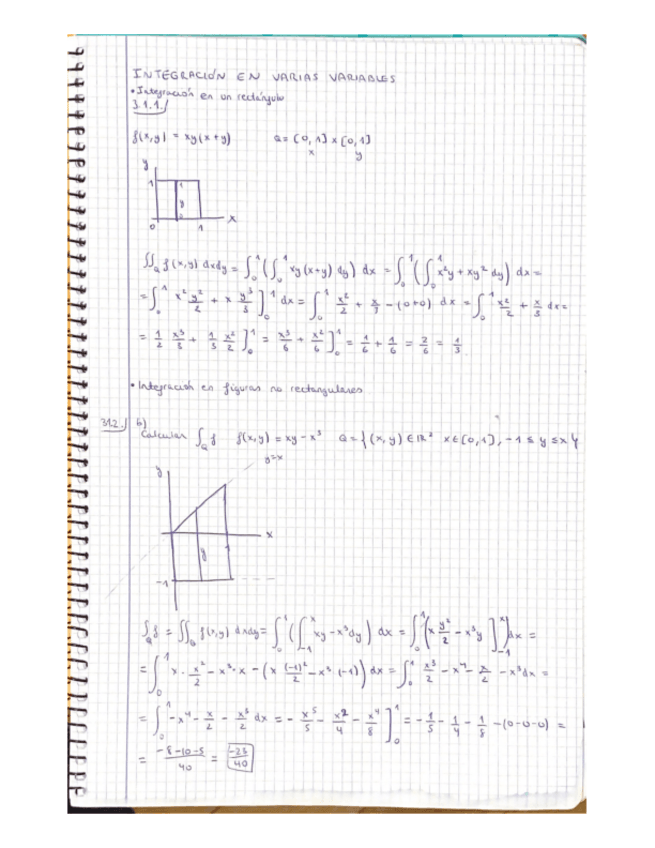 INTEGRACIÓN EN VARIAS VARIABLES
• Integración en un rectángulo
3.1.1.
f(x,y) = xy(x+y) Q = [0,1] x [0,1]
x y
y
1
y
0 1 x
∬_Q f(x,y) dxdy = ∫_0^1 (∫_0^1 xy(x+y) dy) dx = ∫_0^1 (∫_0^1 x²y + xy² dy) dx =
= ∫_0^1 x² y²/2 + x y³/3 ]_0^1 dx = ∫_0^1 x²/2 + x/3 - (0+0) dx = ∫_0^1 x²/2 + x/3 dx =
= 1/2 x³/3 + 1/3 x²/2 ]_0^1 = x³/6 + x²/6 ]_0^1 = 1/6 + 1/6 = 2/6 = 1/3
• Integración en figuras no rectangulares
3.1.2. b)
Calcular ∫_Q f f(x,y) = xy - x³ Q = { (x,y) ∈ ℝ² x ∈ [0,1], -1 ≤ y ≤ x }
y=x
y
x
y
1
-1
∫_Q f = ∬_Q f(x,y) dxdy = ∫_0^1 (∫_{-1}^x xy - x³ dy) dx = ∫_0^1 (x y²/2 - x³y ]_{-1}^x) dx =
= ∫_0^1 x · x²/2 - x³ · x - (x (-1)²/2 - x³ (-1)) dx = ∫_0^1 x³/2 - x⁴ - x/2 - x³ dx =
= ∫_0^1 -x⁴ - x/2 - x³/2 dx = - x⁵/5 - x²/4 - x⁴/8 ]_0^1 = - 1/5 - 1/4 - 1/8 - (0-0-0) =
= -8-10-5/40 = -23/40